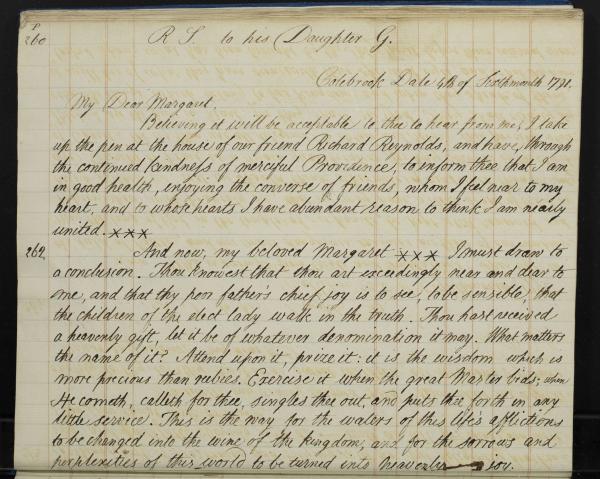 P
260 R S. to his Daughter G.
Colebrook Dale 4th of Sixthmonth 1791.
My Dear Margaret,
Believing it will be acceptable to thee to hear from me, I take
up the pen at the house of our friend Richard Reynolds, and have, through
the continued kindness of merciful Providence, to inform thee that I am
in good health, enjoying the converse of friends, whom I feel near to my
heart, and to whose hearts I have abundant reason to think I am nearly
united. x x x
262 And now, my beloved Margaret x x x I must draw to
a conclusion. Thou knowest that thou art exceedingly near and dear to
me, and that thy poor father's chief joy is to see, to be sensible, that
the children of the elect lady walk in the truth. Thou hast received
a heavenly gift, let it be of whatever denomination it may. What matters
the name of it? Attend upon it, prize it: it is the wisdom which is
more precious than rubies. Exercise it when the great Master bids; when
He cometh, calleth for thee, singles thee out, and puts thee forth in any
little service. This is the way for the waters of this life's afflictions
to be changed into the wine of the kingdom; and for the sorrows and
perplexities of this world to be turned into heavenly joy.